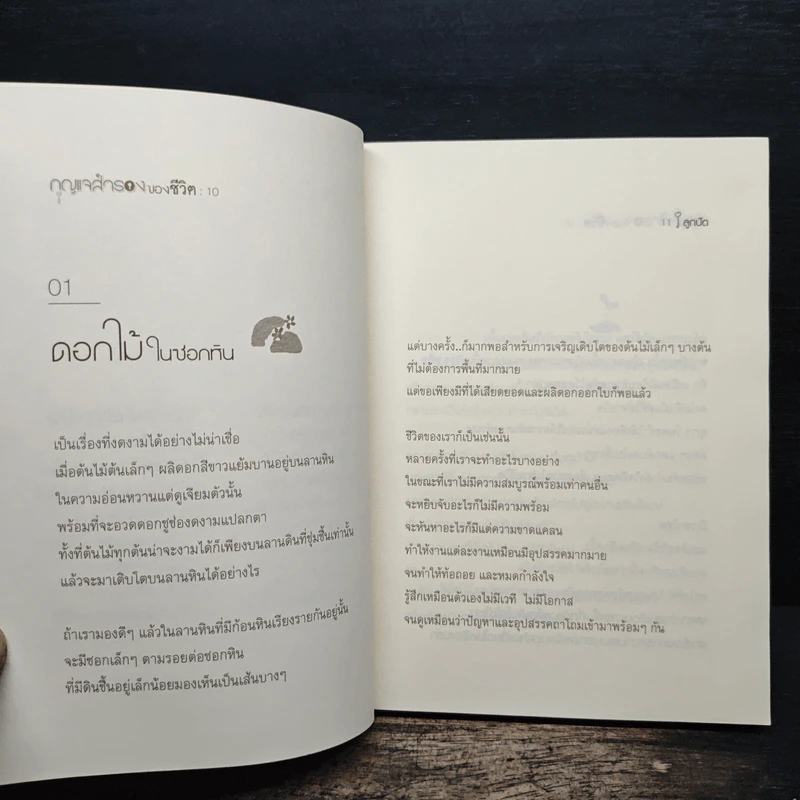 กุญแจสำรองของชีวิต : 10
01
ดอกไม้ในซอกหิน
เป็นเรื่องที่งดงามได้อย่างไม่น่าเชื่อ
เมื่อต้นไม้ต้นเล็กๆ ผลิดอกสีขาวแย้มบานอยู่บนลานหิน
ในความอ่อนหวานแต่ดูเจียมตัวนั้น
พร้อมที่จะอวดดอกชูช่องดงามแปลกตา
ทั้งที่ต้นไม้ทุกต้นน่าจะงามได้ก็เพียงบนลานดินที่ชุ่มชื้นเท่านั้น
แล้วจะมาเติบโตบนลานหินได้อย่างไร
ถ้าเรามองดีๆ แล้วในลานหินที่มีก้อนหินเรียงรายกันอยู่นั้น
จะมีซอกเล็กๆ ตามรอยต่อซอกหิน
ที่มีดินชื้นอยู่เล็กน้อยมองเห็นเป็นเส้นบางๆ
11 ลูกปัด
แต่บางครั้ง..ก็มากพอสำหรับการเจริญเติบโตของต้นไม้เล็กๆ บางต้น
ที่ไม่ต้องการพื้นที่มากมาย
แต่ขอเพียงมีที่ได้เสียดยอดและผลิดอกออกใบก็พอแล้ว
ชีวิตของเราก็เป็นเช่นนั้น
หลายครั้งที่เราจะทำอะไรบางอย่าง
ในขณะที่เราไม่มีความสมบูรณ์พร้อมเท่าคนอื่น
จะหยิบจับอะไรก็ไม่มีความพร้อม
จะหันหาอะไรก็มีแต่ความขาดแคลน
ทำให้งานแต่ละงานเหมือนมีอุปสรรคมากมาย
จนทำให้ท้อถอย และหมดกำลังใจ
รู้สึกเหมือนตัวเองไม่มีเวที ไม่มีโอกาส
จนดูเหมือนว่าปัญหาและอุปสรรคถาโถมเข้ามาพร้อมๆ กัน